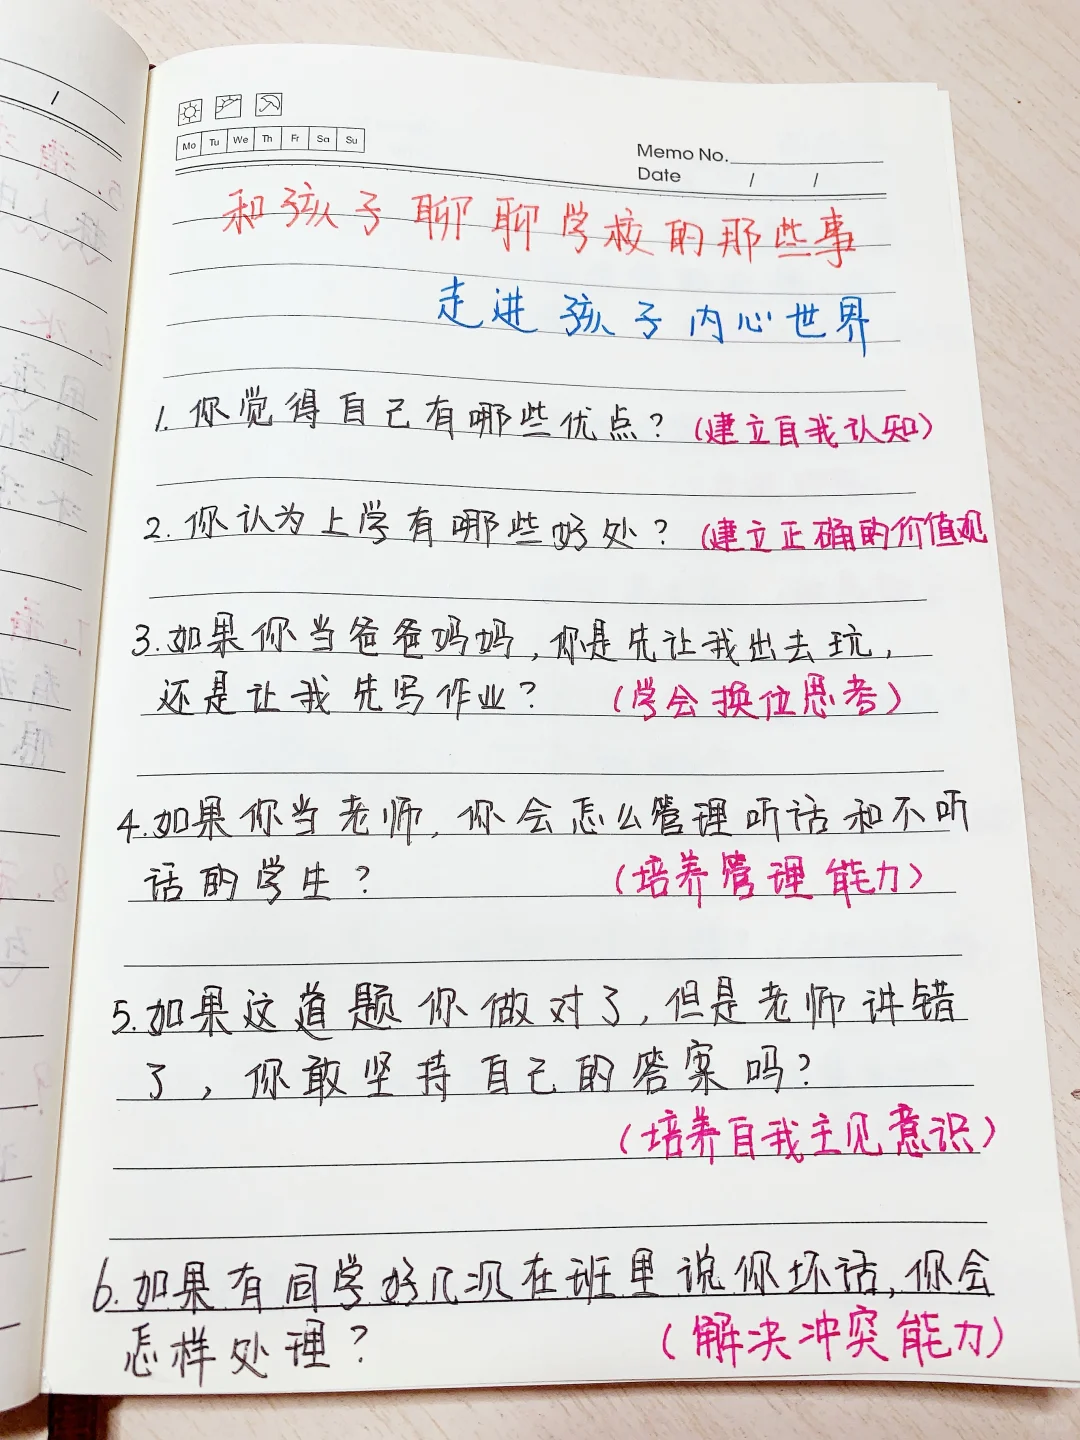 Mo Tu We Th Fr Sa Su
Memo No.
Date / /
和孩子聊聊学校的那些事
走进孩子内心世界
1. 你觉得自己有哪些优点？（建立自我认知）
2. 你认为上学有哪些好处？（建立正确的价值观
3. 如果你当爸爸妈妈，你是先让我出去玩，
还是让我先写作业？（学会换位思考）
4. 如果你当老师，你会怎么管理听话和不听
话的学生？（培养管理能力）
5. 如果这道题你做对了，但是老师讲错
了，你敢坚持自己的答案吗？
（培养自我主见意识）
6. 如果有同学好几次在班里说你坏话，你会
怎样处理？（解决冲突能力）